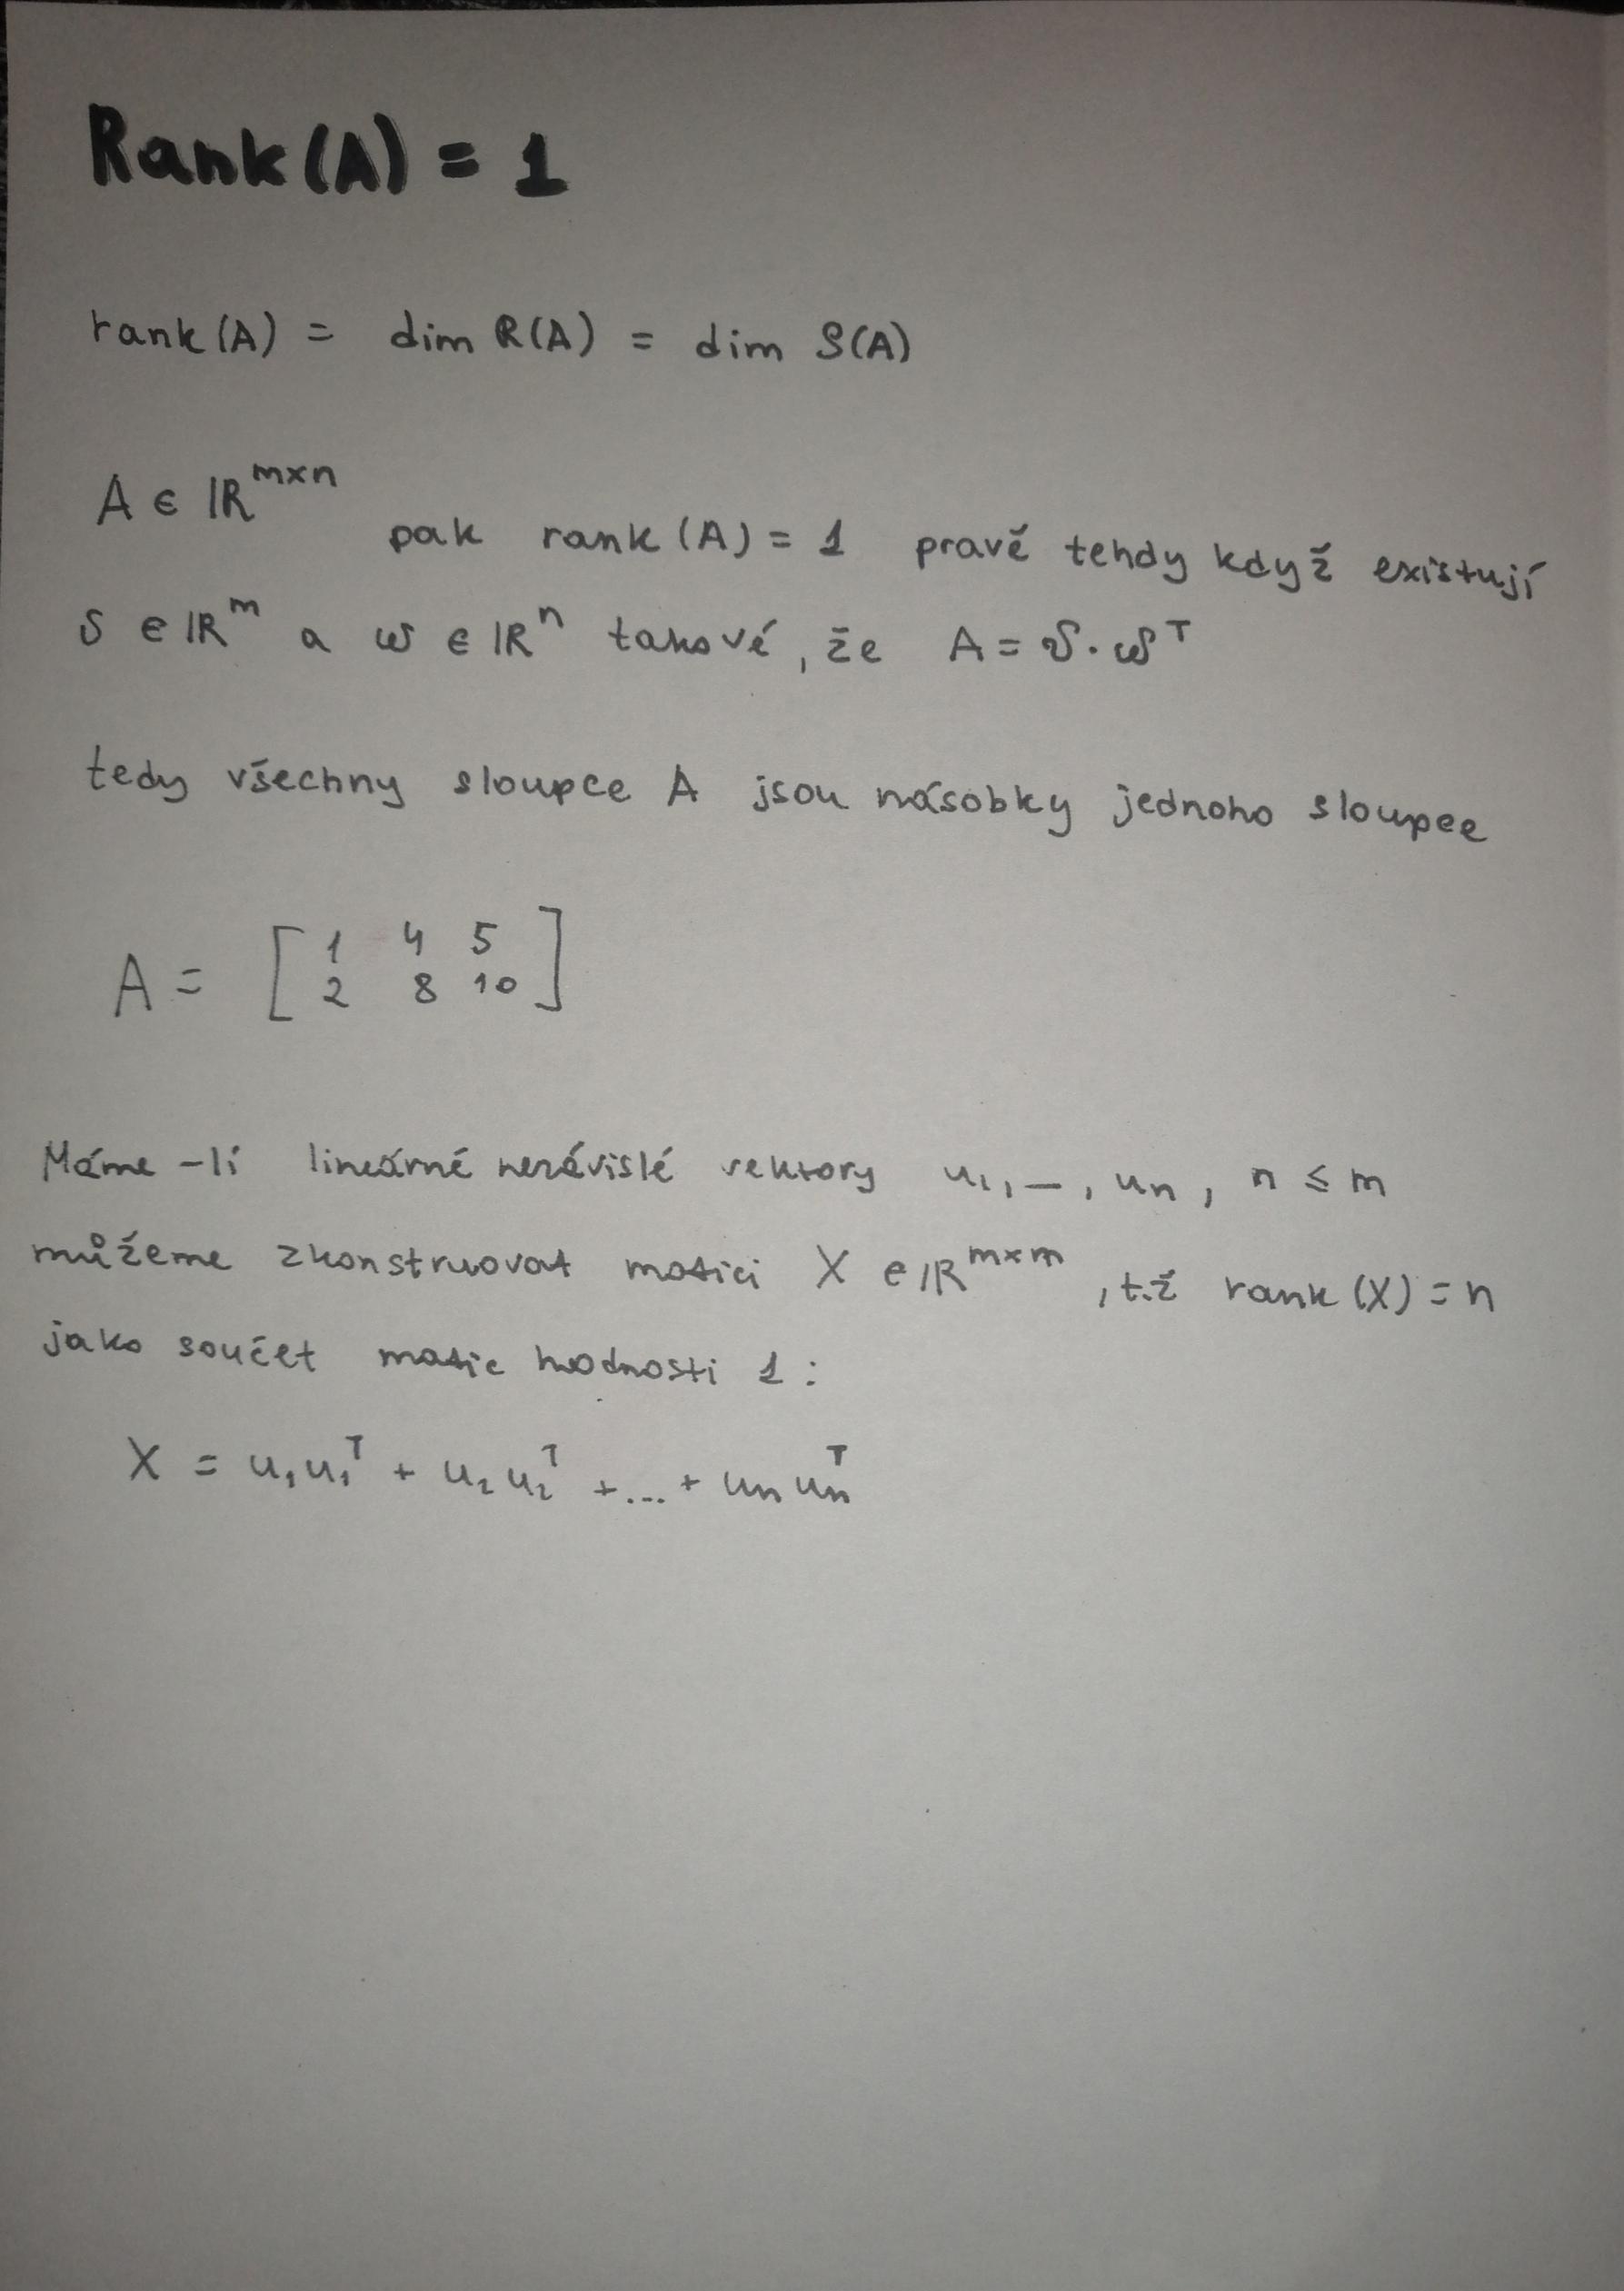 Rank(A) = 1
rank(A) = dim R(A) = dim S(A)
A ∈ ℝ^{m×n} pak rank(A) = 1 pravě tehdy když existují
v ∈ ℝ^m a w ∈ ℝ^n takové, že A = v·w^T
tedy všechny sloupce A jsou násobky jednoho sloupce
A = [ 1 4 5
2 8 10 ]
Máme-li lineárně nezávislé vektory u₁, –, uₙ, n ≤ m
můžeme zkonstruovat matici X ∈ ℝ^{m×m}, t.ž rank(X) = n
jako součet matic hodnosti 1:
X = u₁u₁^T + u₂u₂^T + ... + uₙuₙ^T